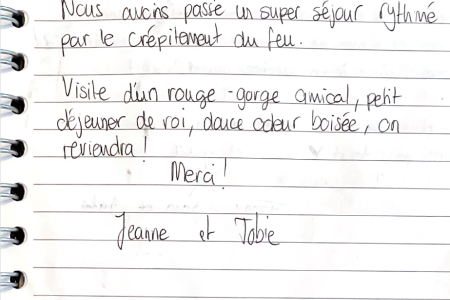 Nous avons passé un super séjour rythmé
par le crépitement du feu.
Visite d'un rouge-gorge amical, petit
déjeuner de roi, douce odeur boisée, on
reviendra!
Merci!
Jeanne et Tobie